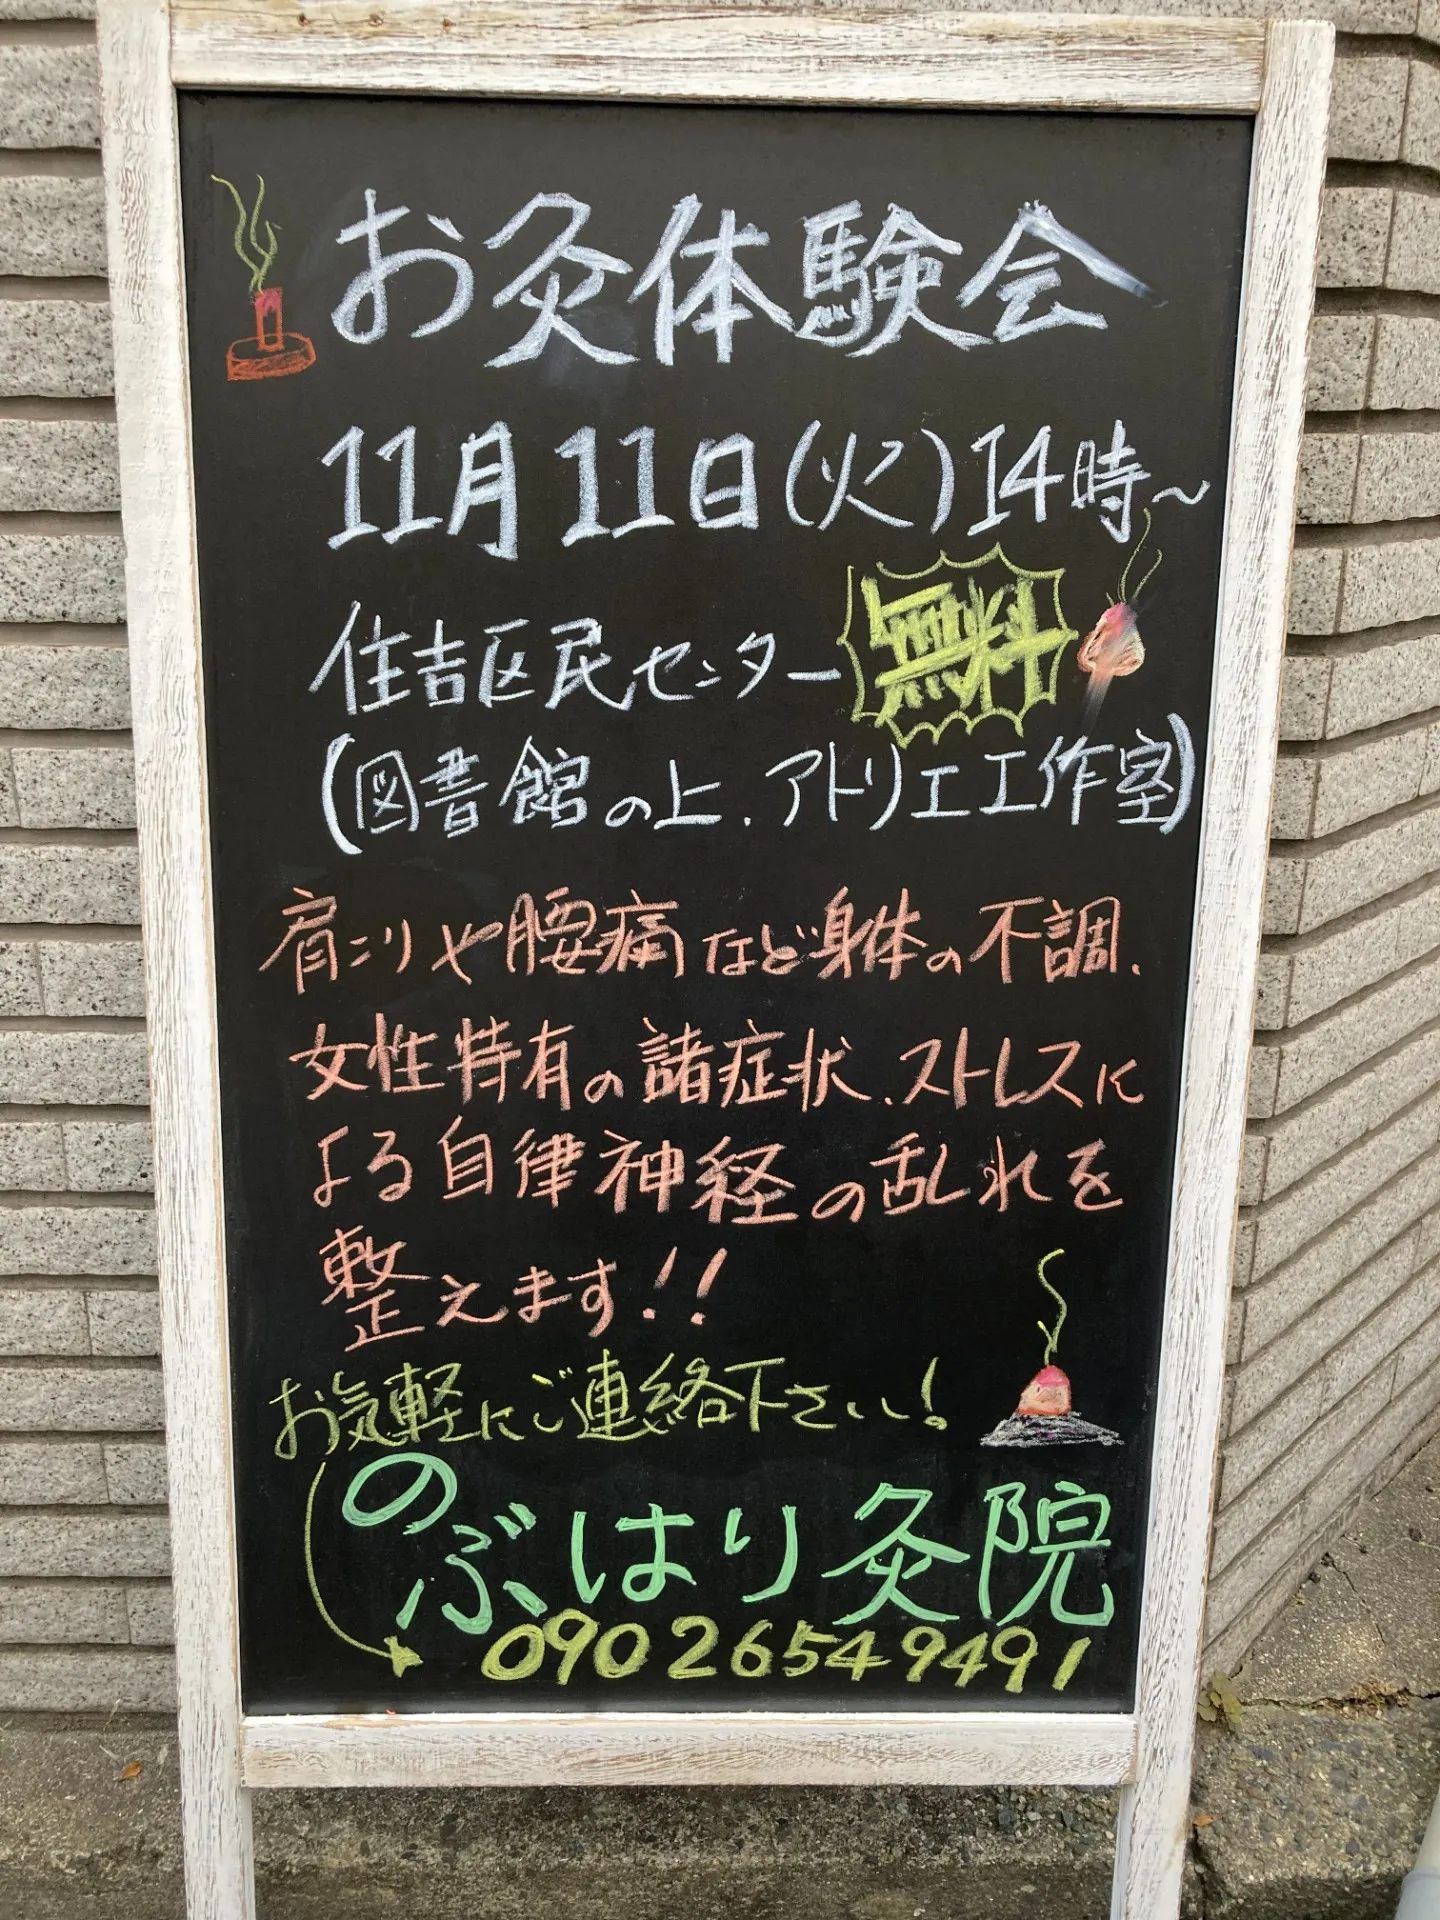 お灸体験会
11月11日(火)14時〜
住吉区民センター
無料
(図書館の上.アトリエ工作室)
肩こりや腰痛など身体の不調.
女性特有の諸症状.ストレスに
よる自律神経の乱れを
整えます!!
お気軽にご連絡下さい!
のぶはり灸院
09026549491